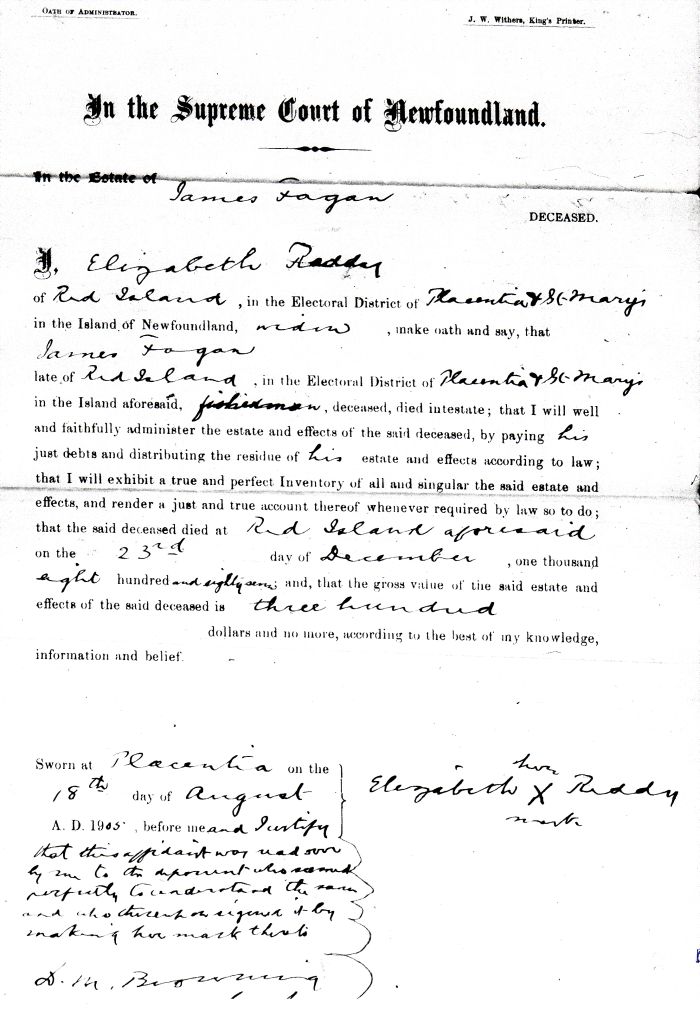 OATH OF ADMINISTRATOR.
J. W. Withers, King's Printer.
In the Supreme Court of Newfoundland.
In the Estate of
James Fagan
DECEASED.
I, Elizabeth Reddy
of Red Island, in the Electoral District of Placentia & St. Mary's
in the Island of Newfoundland, widow, make oath and say, that
James Fagan
late of Red Island, in the Electoral District of Placentia & St. Mary's
in the Island aforesaid, fisherman, deceased, died intestate; that I will well
and faithfully administer the estate and effects of the said deceased, by paying his
just debts and distributing the residue of his estate and effects according to law;
that I will exhibit a true and perfect Inventory of all and singular the said estate and
effects, and render a just and true account thereof whenever required by law so to do;
that the said deceased died at Red Island aforesaid
on the 23rd day of December, one thousand
eight hundred and eighty seven; and, that the gross value of the said estate and
effects of the said deceased is three hundred
dollars and no more, according to the best of my knowledge,
information and belief.
Sworn at Placentia on the
18th day of August
A. D. 1905, before me and I certify
that this affidavit was read over
by me to the deponent who seemed
perfectly to understand the same
and who thereupon signed it by
making her mark thereto
D. M. Browning
her
Elizabeth X Reddy
mark